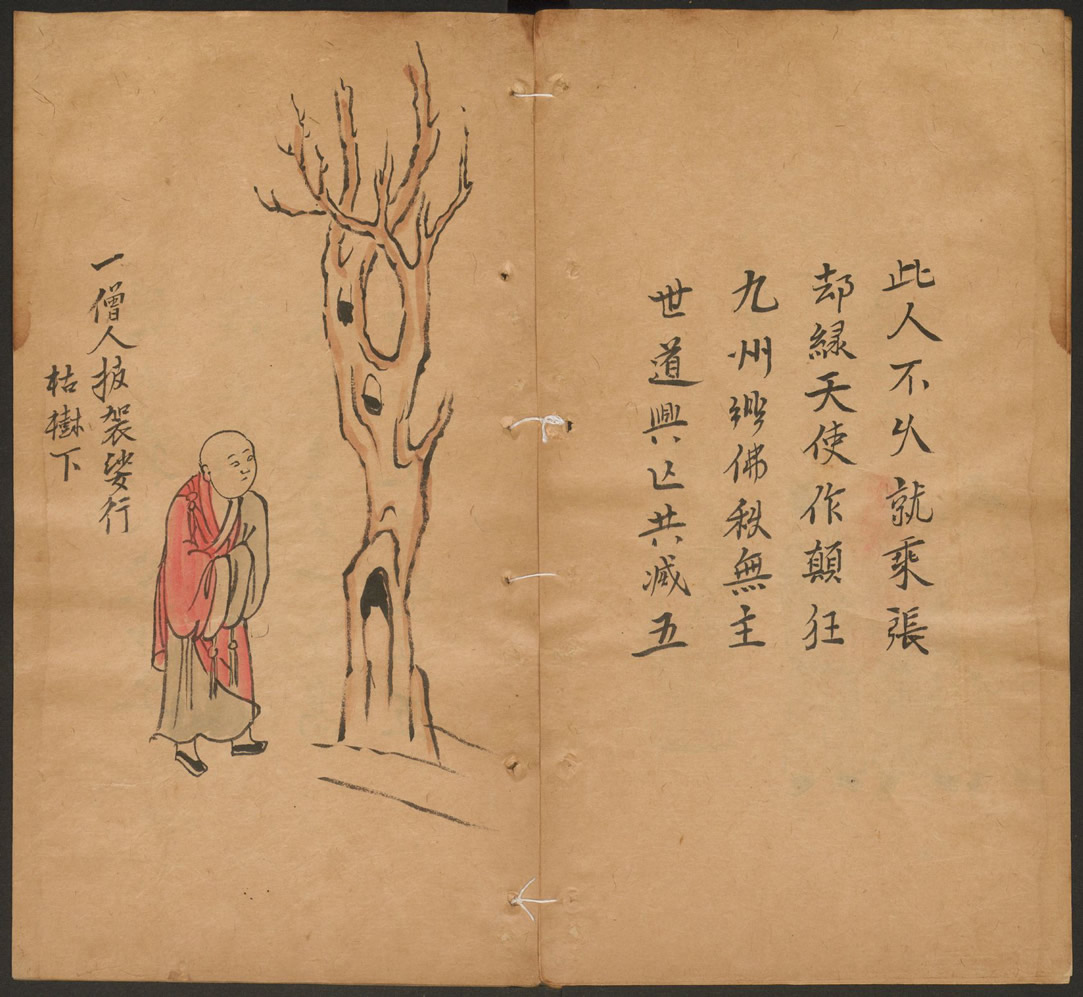 此人不久就乖張
却緣天使作顛狂
九州佛秩無主
世道興亡共滅五
一僧人披袈裟行
枯樹下